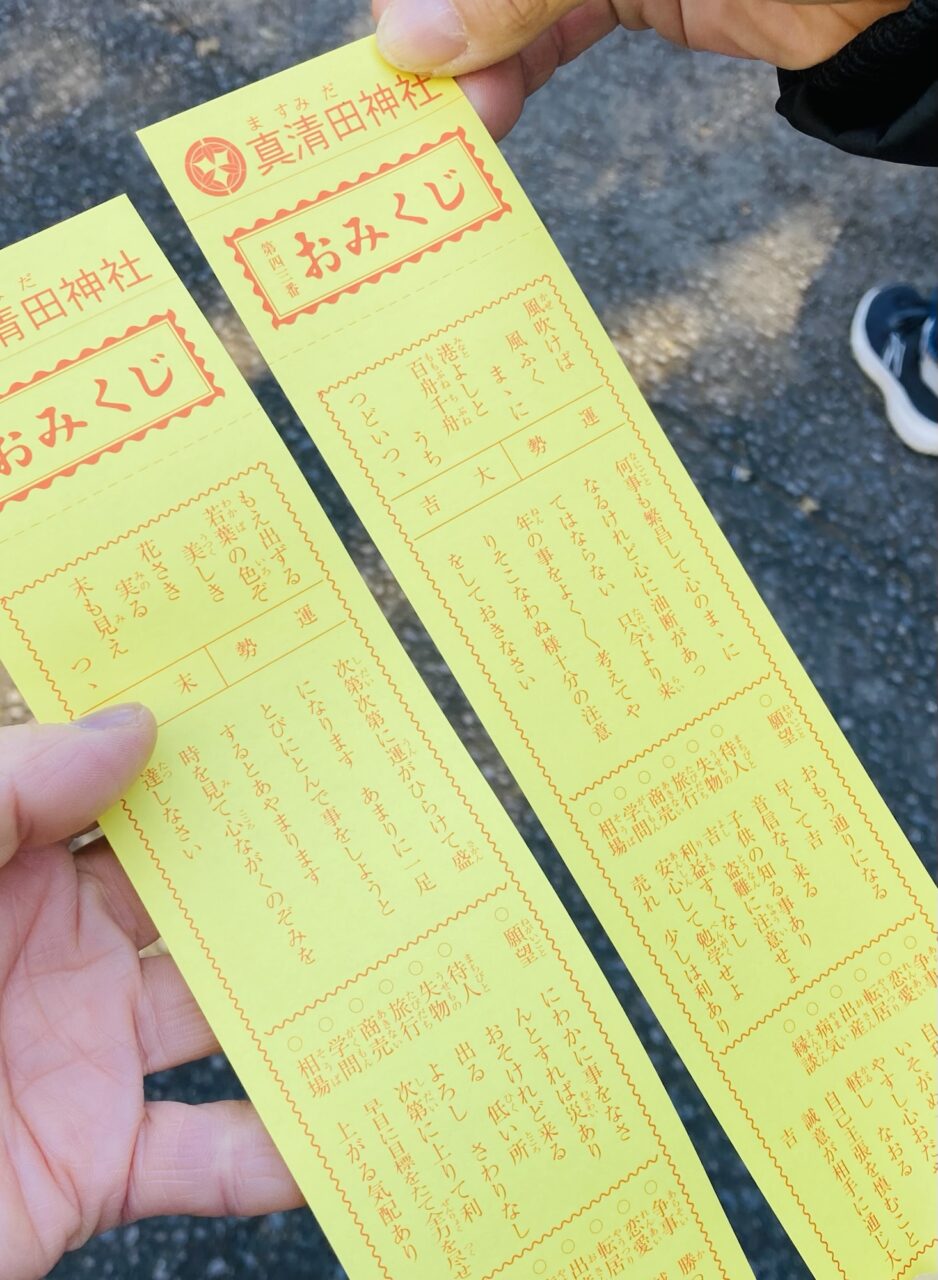 真清田神社
ますみだ
第四三番
おみくじ
風吹けば
風ふくまゝに
港よしと
百舟千舟
うち
つどいつゝ
運勢
大吉
何事も繁昌して心のまゝに
なるけれど心に油断があっ
てはならない 只今より来
年の事をよく〱考えてや
りそこなわぬ様十分の注意
をしておきなさい
願望 おもう通りになる
待人 早くて吉
失物 音信なく来る
旅行 子供の知る事あり
商売 吉 盗難に注意せよ
学問 利益すくなし
相場 安心して勉学せよ
売れ 少しは利あり
争事
恋愛
転居
出産
病気
縁談
やすし
なおる
軽し
自己主張を慎むこと
誠意が相手に通じ大
吉
清田神社
だ
おみくじ
もえ出ずる
若葉の色ぞ
美しき
花さき
実る
末も見え
つゝ
運勢
末
次第次第に運がひらけて盛
になります あまりに一足
とびにとんで事をしようと
するとあやまります
時を見て心ながくのぞみを
達しなさい
願望 にわかに事をなさ
んとすれば災あり
待人 おそけれど来る
失物 出る 低い所
旅行 よろし さわりなし
商売 次第に上りて利
学問 早目に目標をたて全力を
相場 上がる気配あり
争事 勝
恋愛
転居
出